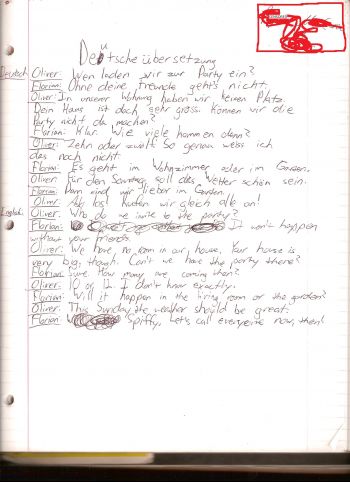 Deütsche übersetzung
Deutsch: Oliver: Wen laden wir zur Party ein?
Florian: Ohne deine Freunde geht's nicht.
Oliver: In unserer Wohnung haben wir keinen Platz.
Dein Haus ist doch sehr gross. Können wir die
Party nicht da machen?
Florian: Klar. Wie viele kommen denn?
Oliver: Zehn oder zwölf. So genau weiss ich
das noch nicht.
Florian: Es geht im Wohnzimmer oder im Garten.
Oliver: Für den Sonntag soll das Wetter schön sein.
Florian: Dann sind wir lieber im Garten.
Oliver: Also los! Rufen wir gleich alle an!
English: Oliver: Who do we invite to the party?
Florian: It won't happen
without your friends.
Oliver: We have no room in our house. Your house is
very big, though. Can't we have the party there?
Florian: Sure. How many are coming then?
Oliver: 10 or 12. I don't know exactly.
Florian: Will it happen in the living room or the garden?
Oliver: This Sunday the weather should be great.
Florian: Spiffy, Let's call everyone now, then!